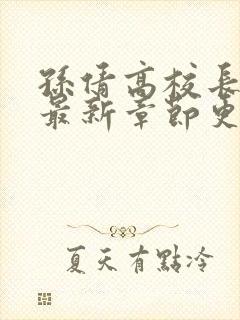 孫倩高校長
最新章節更
夏天有點冷